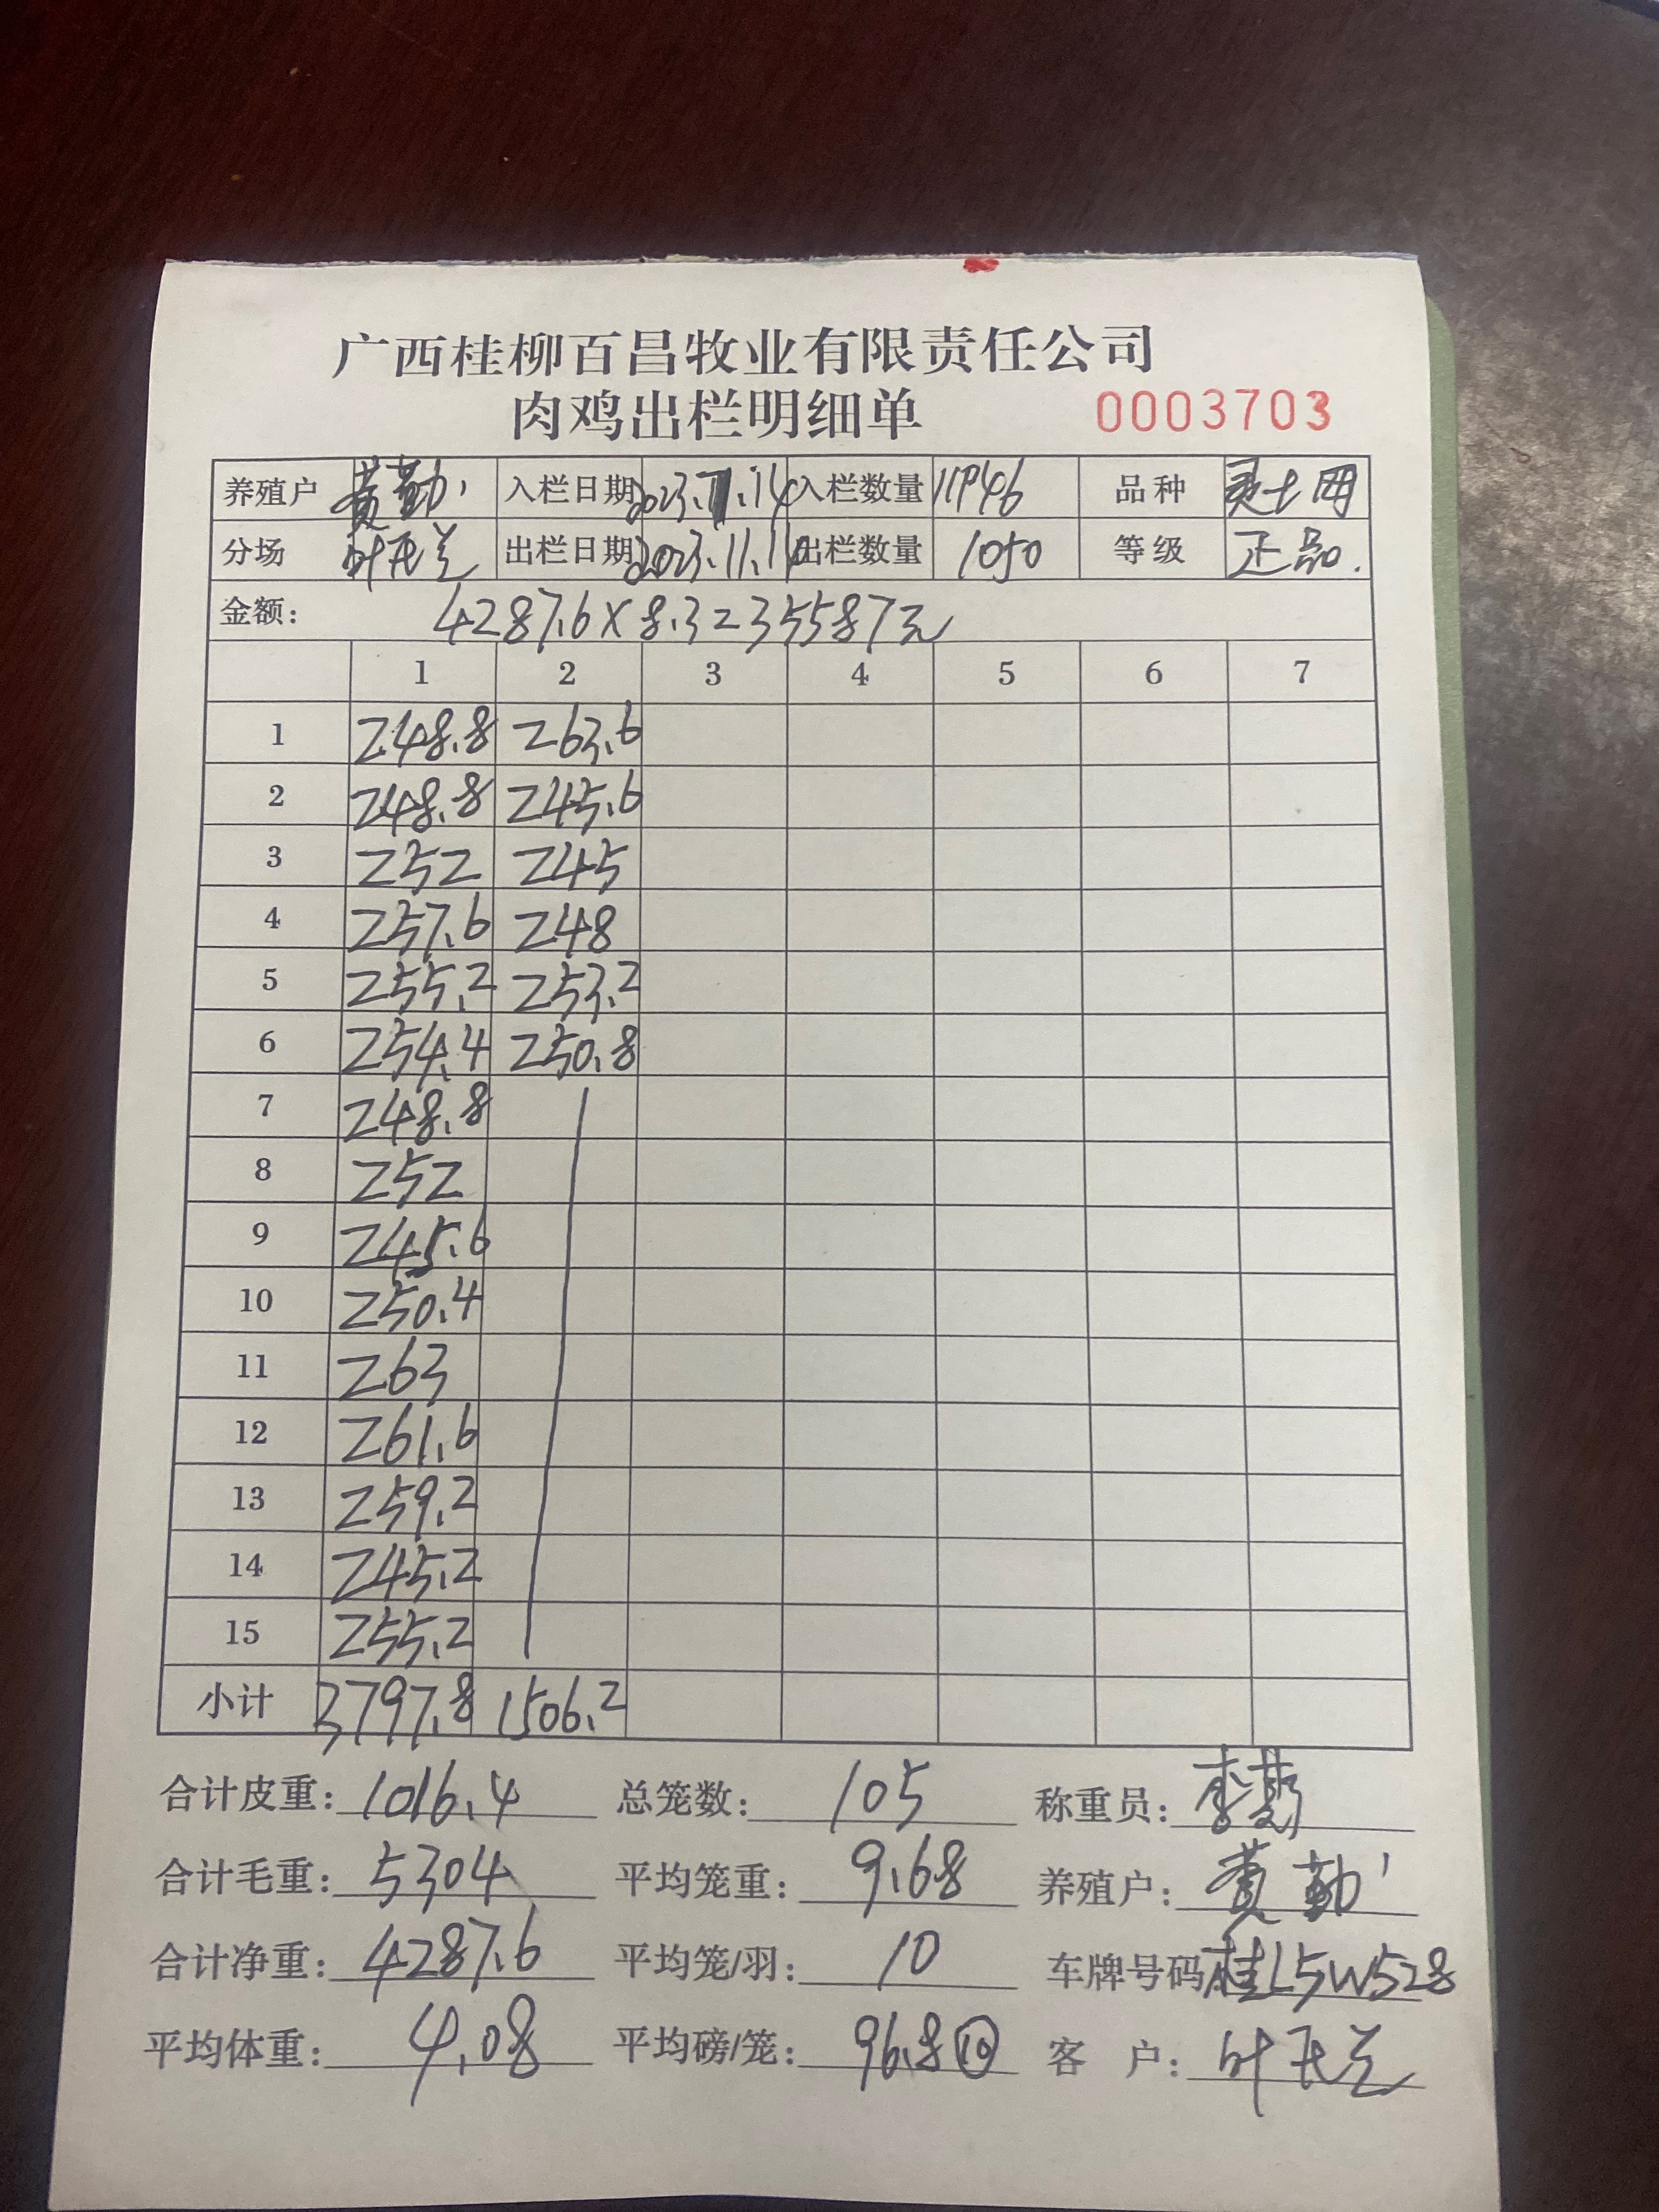 广西桂柳百昌牧业有限责任公司
肉鸡出栏明细单 0003703
养殖户 黄勤 入栏日期 2023.7.14 入栏数量 品种
分场 叶天兰 出栏日期 2023.11.10 出栏数量 1050 等级 正品.
金额: 4287.6×8.3=35587元
1 2 3 4 5 6 7
1 248.8 263.6
2 248.8 245.6
3 252 245
4 257.6 248
5 255.2 253.2
6 254.4 250.8
7 248.8
8 252
9 245.6
10 250.4
11 263
12 261.6
13 259.2
14 245.2
15 255.2
小计 3797.8 1506.2
合计皮重: 1016.4 总笼数: 105 称重员:
合计毛重: 5304 平均笼重: 9.68 养殖户: 黄勤
合计净重: 4287.6 平均笼/羽: 10 车牌号码 桂L5W528
平均体重: 4.08 平均磅/笼: 96.8⑩ 客户: 叶天兰